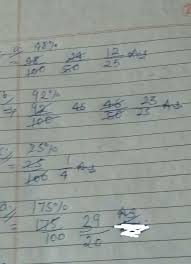 a 48%
= 48/100 24/50 12/25 Ans
b 92%
= 92/100 46 46/50 23/25 Ans
c 25%
= 25/100 1/4 Ans
175%
= 175/100 29/20